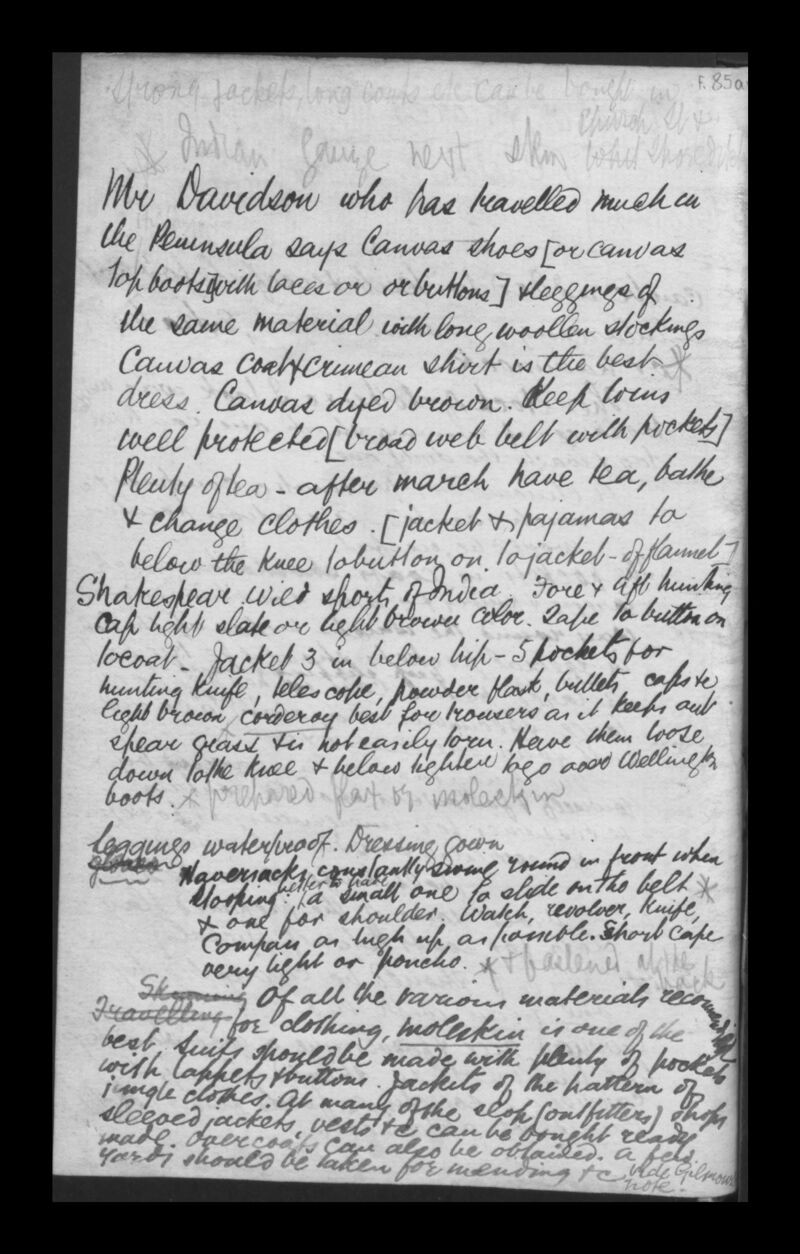 F. 85a
Strong jackets, long coats etc can be bought in
Church St &
* Indian gauze next skin
Mr Davidson who has travelled much in
the Peninsula says Canvas shoes [or canvas
top boots] with laces or or buttons] & leggings of
the same material with long woollen stockings
Canvas coat & crimean shirt is the best *
dress. Canvas dyed brown. Keep loins
well protected [broad web belt with pockets]
Plenty of tea - after march have tea, bathe
& change clothes. [jacket & pajamas to
below the knee to button on to jacket - of flannel]
Shakespear wild sports of India. Fore & aft hunting
cap light slate or light brown color. Tape to button on
to coat - Jacket 3 in below hip - 5 pockets for
hunting knife, telescope, powder flask, bullets caps &c
light brown corderoy best for trousers as it keeps out
spear grass & is not easily torn. Have them loose
down to the knee & below tighten to go over Wellington
boots. x prepared flax or moleskin
Leggings waterproof. Dressing gown
Haversacks constantly swing round in front when
stooping. better to have a small one to slide on the belt *
& one for shoulder. Watch, revolver, knife,
Compass as high up as possible. Short cape
very light or poncho. x & fastened at the
back
Of all the various materials recommended
Travelling for clothing, moleskin is one of the
best. Suits should be made with plenty of pockets
with lappets & buttons. Jackets of the pattern of
jungle clothes. At many of the slop (outfitters) shops
sleeved jackets, vests &c can be bought ready
made. Overcoats can also be obtained. A few
yards should be taken for mending &c vide Gilmour
note.